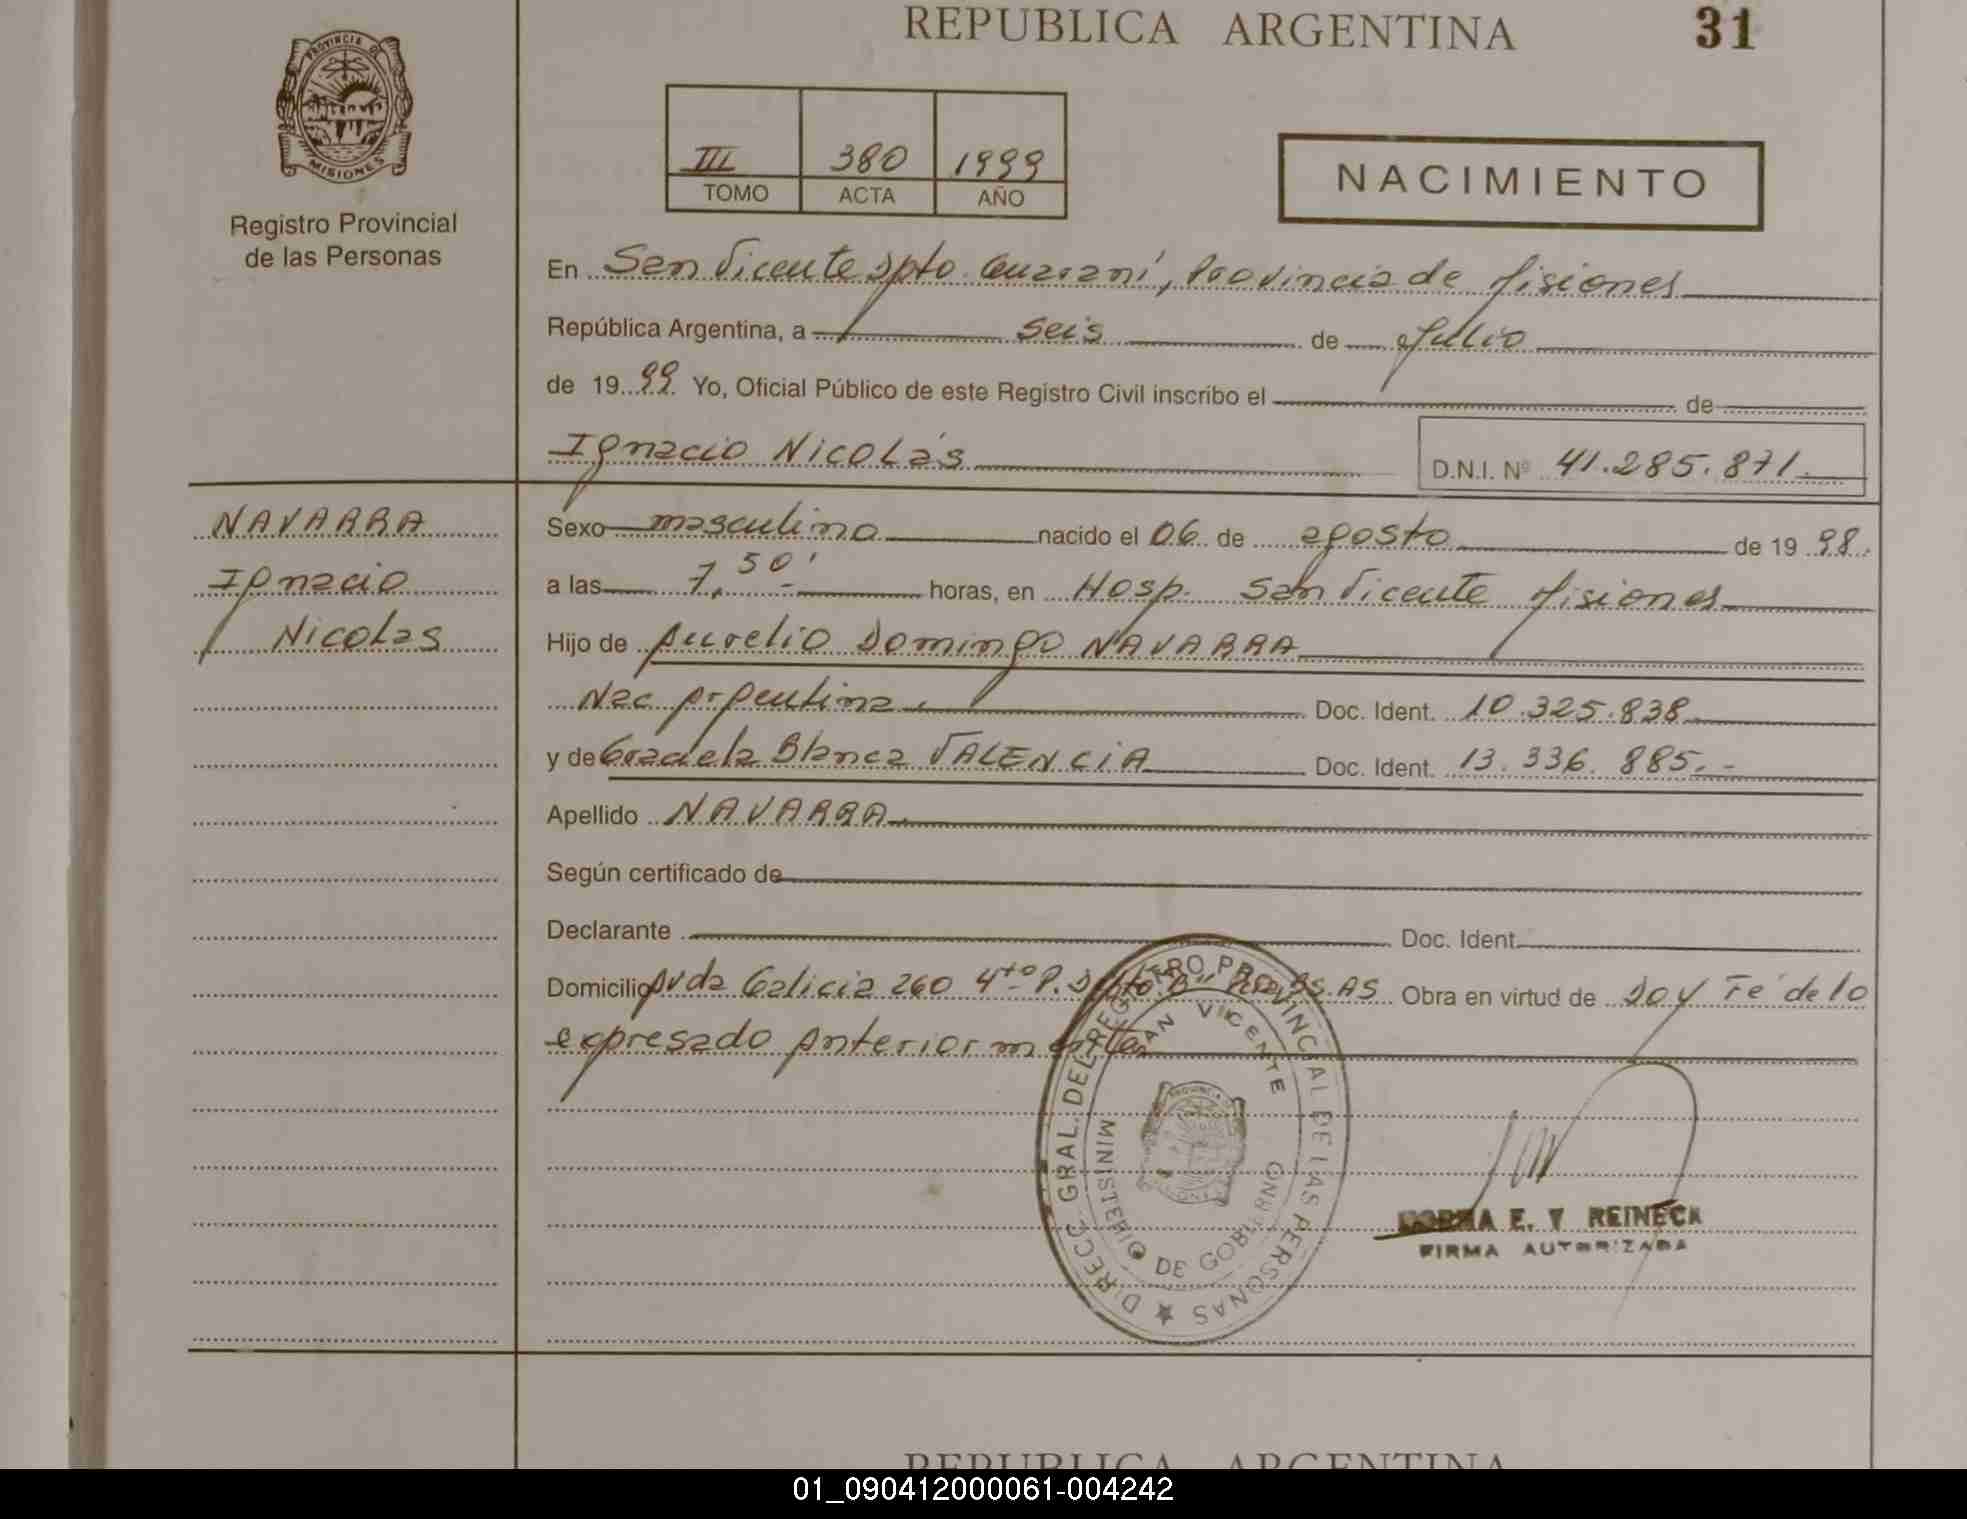 REPUBLICA ARGENTINA 31
PROVINCIA DE
MISIONES
Registro Provincial
de las Personas
III 380 1999
TOMO ACTA AÑO
NACIMIENTO
En San Vicente Dpto. Guaraní, Provincia de Misiones
República Argentina, a seis de Julio
de 1999. Yo, Oficial Público de este Registro Civil inscribo el de
Ignacio Nicolás
D.N.I. Nº 41.285.871.
NAVARRA
Ignacio
Nicolas
Sexo masculino nacido el 06 de agosto de 1998.
a las 7,50' horas, en Hosp. San Vicente Misiones
Hijo de Aurelio Domingo NAVARRA
Nac Argentina. Doc. Ident. 10.325.838
y de Graciela Blanca VALENCIA Doc. Ident. 13.336.885.-
Apellido NAVARRA.
Según certificado de
Declarante Doc. Ident.
Domicilio Avda Galicia 260 4to P. Dpto BS.AS Obra en virtud de Doy Fé de lo
expresado anteriormente
DIRECC. GRAL. DEL REGISTRO PROVINCIAL DE LAS PERSONAS
SAN VICENTE
MINISTERIO DE GOBIERNO
NORMA E. V REINECK
FIRMA AUTORIZADA
REPUBLICA ARGENTINA
01_090412000061-004242